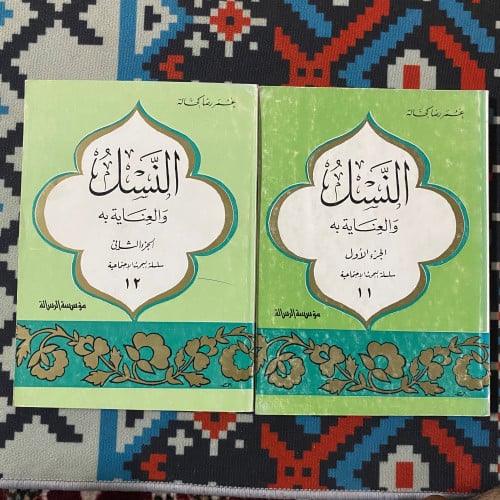 عمر رضا كحالة
النسل
والعناية به
الجزء الأول
سلسلة البحوث الاجتماعية
١١
مؤسسة الرسالة
عمر رضا كحالة
النَّسْلُ
والعناية به
الجزء الثاني
سلسلة البحوث الاجتماعية
١٢
مؤسسة الرسالة